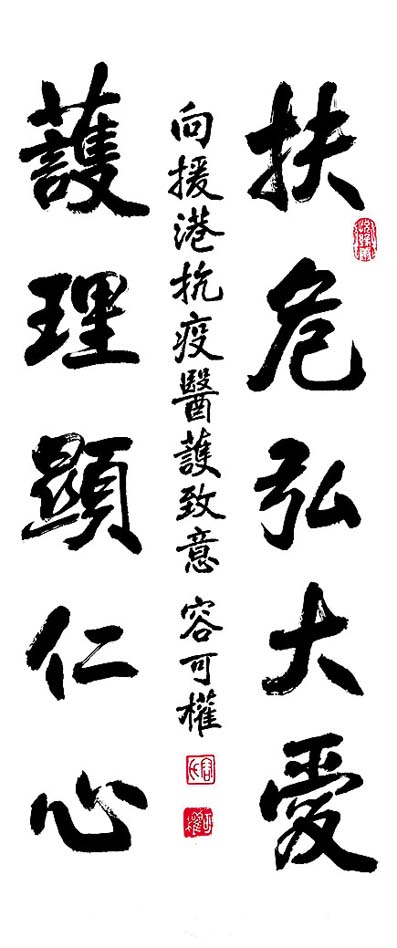 扶危弘大愛
護理顯仁心
向援港抗疫醫護致意 容可權